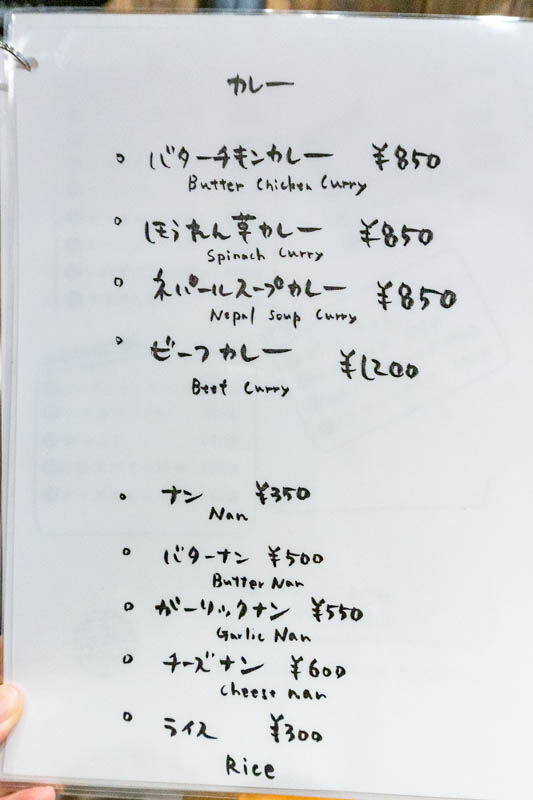 カレー
○ バターチキンカレー ¥850
Butter Chicken Curry
○ ほうれん草カレー ¥850
Spinach Curry
○ ネパールスープカレー ¥850
Nepal Soup Curry
○ ビーフカレー ¥1200
Beef Curry
○ ナン ¥350
Nan
○ バターナン ¥500
Butter Nan
○ ガーリックナン ¥550
Garlic Nan
○ チーズナン ¥600
Cheese nan
○ ライス ¥300
Rice